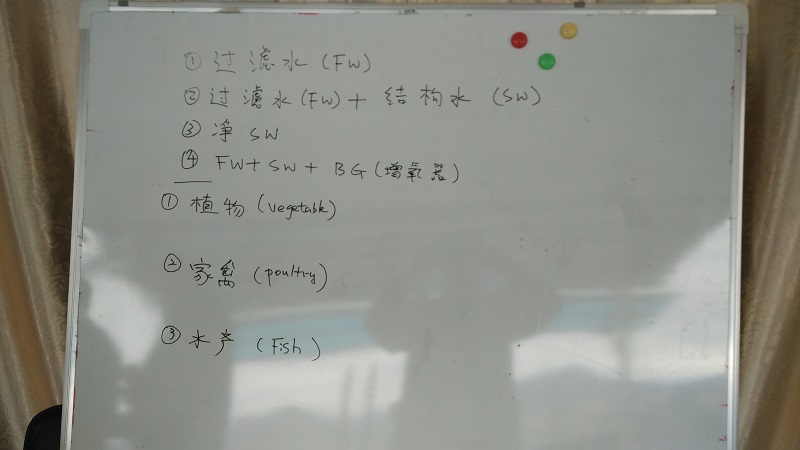 ① 过滤水 (FW)
② 过滤水(FW) + 结构水 (SW)
③ 净 SW
④ FW + SW + BG (增氧器)
① 植物 (vegetable)
② 家禽 (poultry)
③ 水产 (Fish)